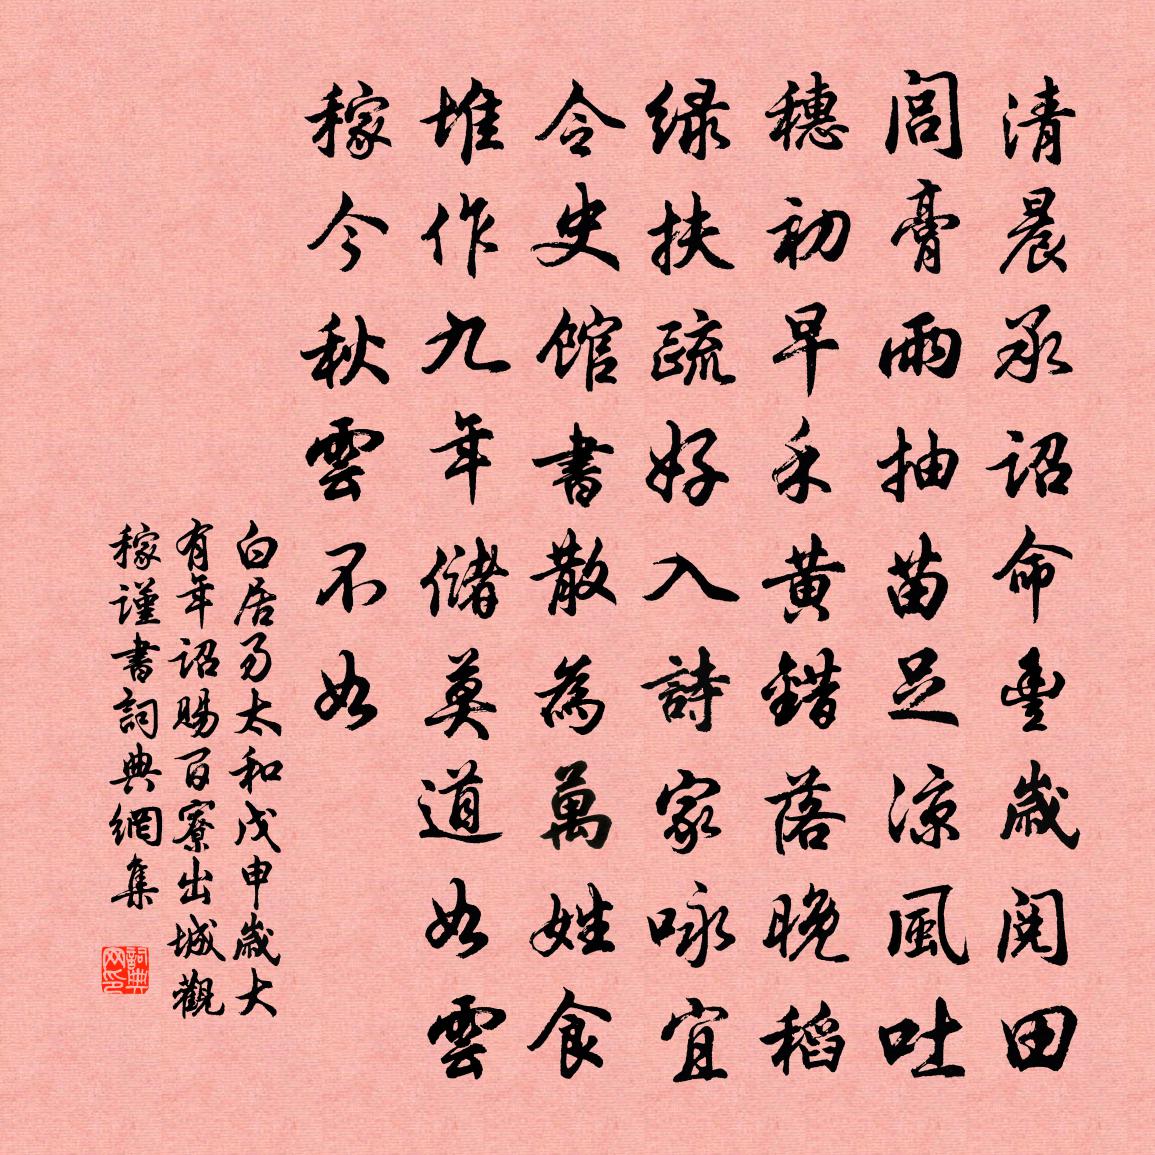 清晨承詔命豐歲閱田
閭膏雨抽苗足涼風吐
穗初早禾黃錯落晚稻
綠扶疏好入詩家咏宜
令史館書散為萬姓食
堆作九年儲莫道如雲
稼今秋雲不如
白居易太和戊申歲大
有年詔賜百寮出城觀
稼謹書詞典網集
詞典网印